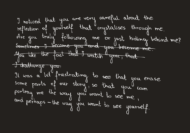 I noticed that you are very careful about the
reflection of yourself that crystalises through me
Are you busy following me or just looking behind me?
Sometimes I become you and you become me
You like the fact that I until you, that
I challenge you.
It was a bit frustrating to see that you erase
some parts of our story so that you can
portray me the way you want to see me,
and perhaps - the way you want to see yourself